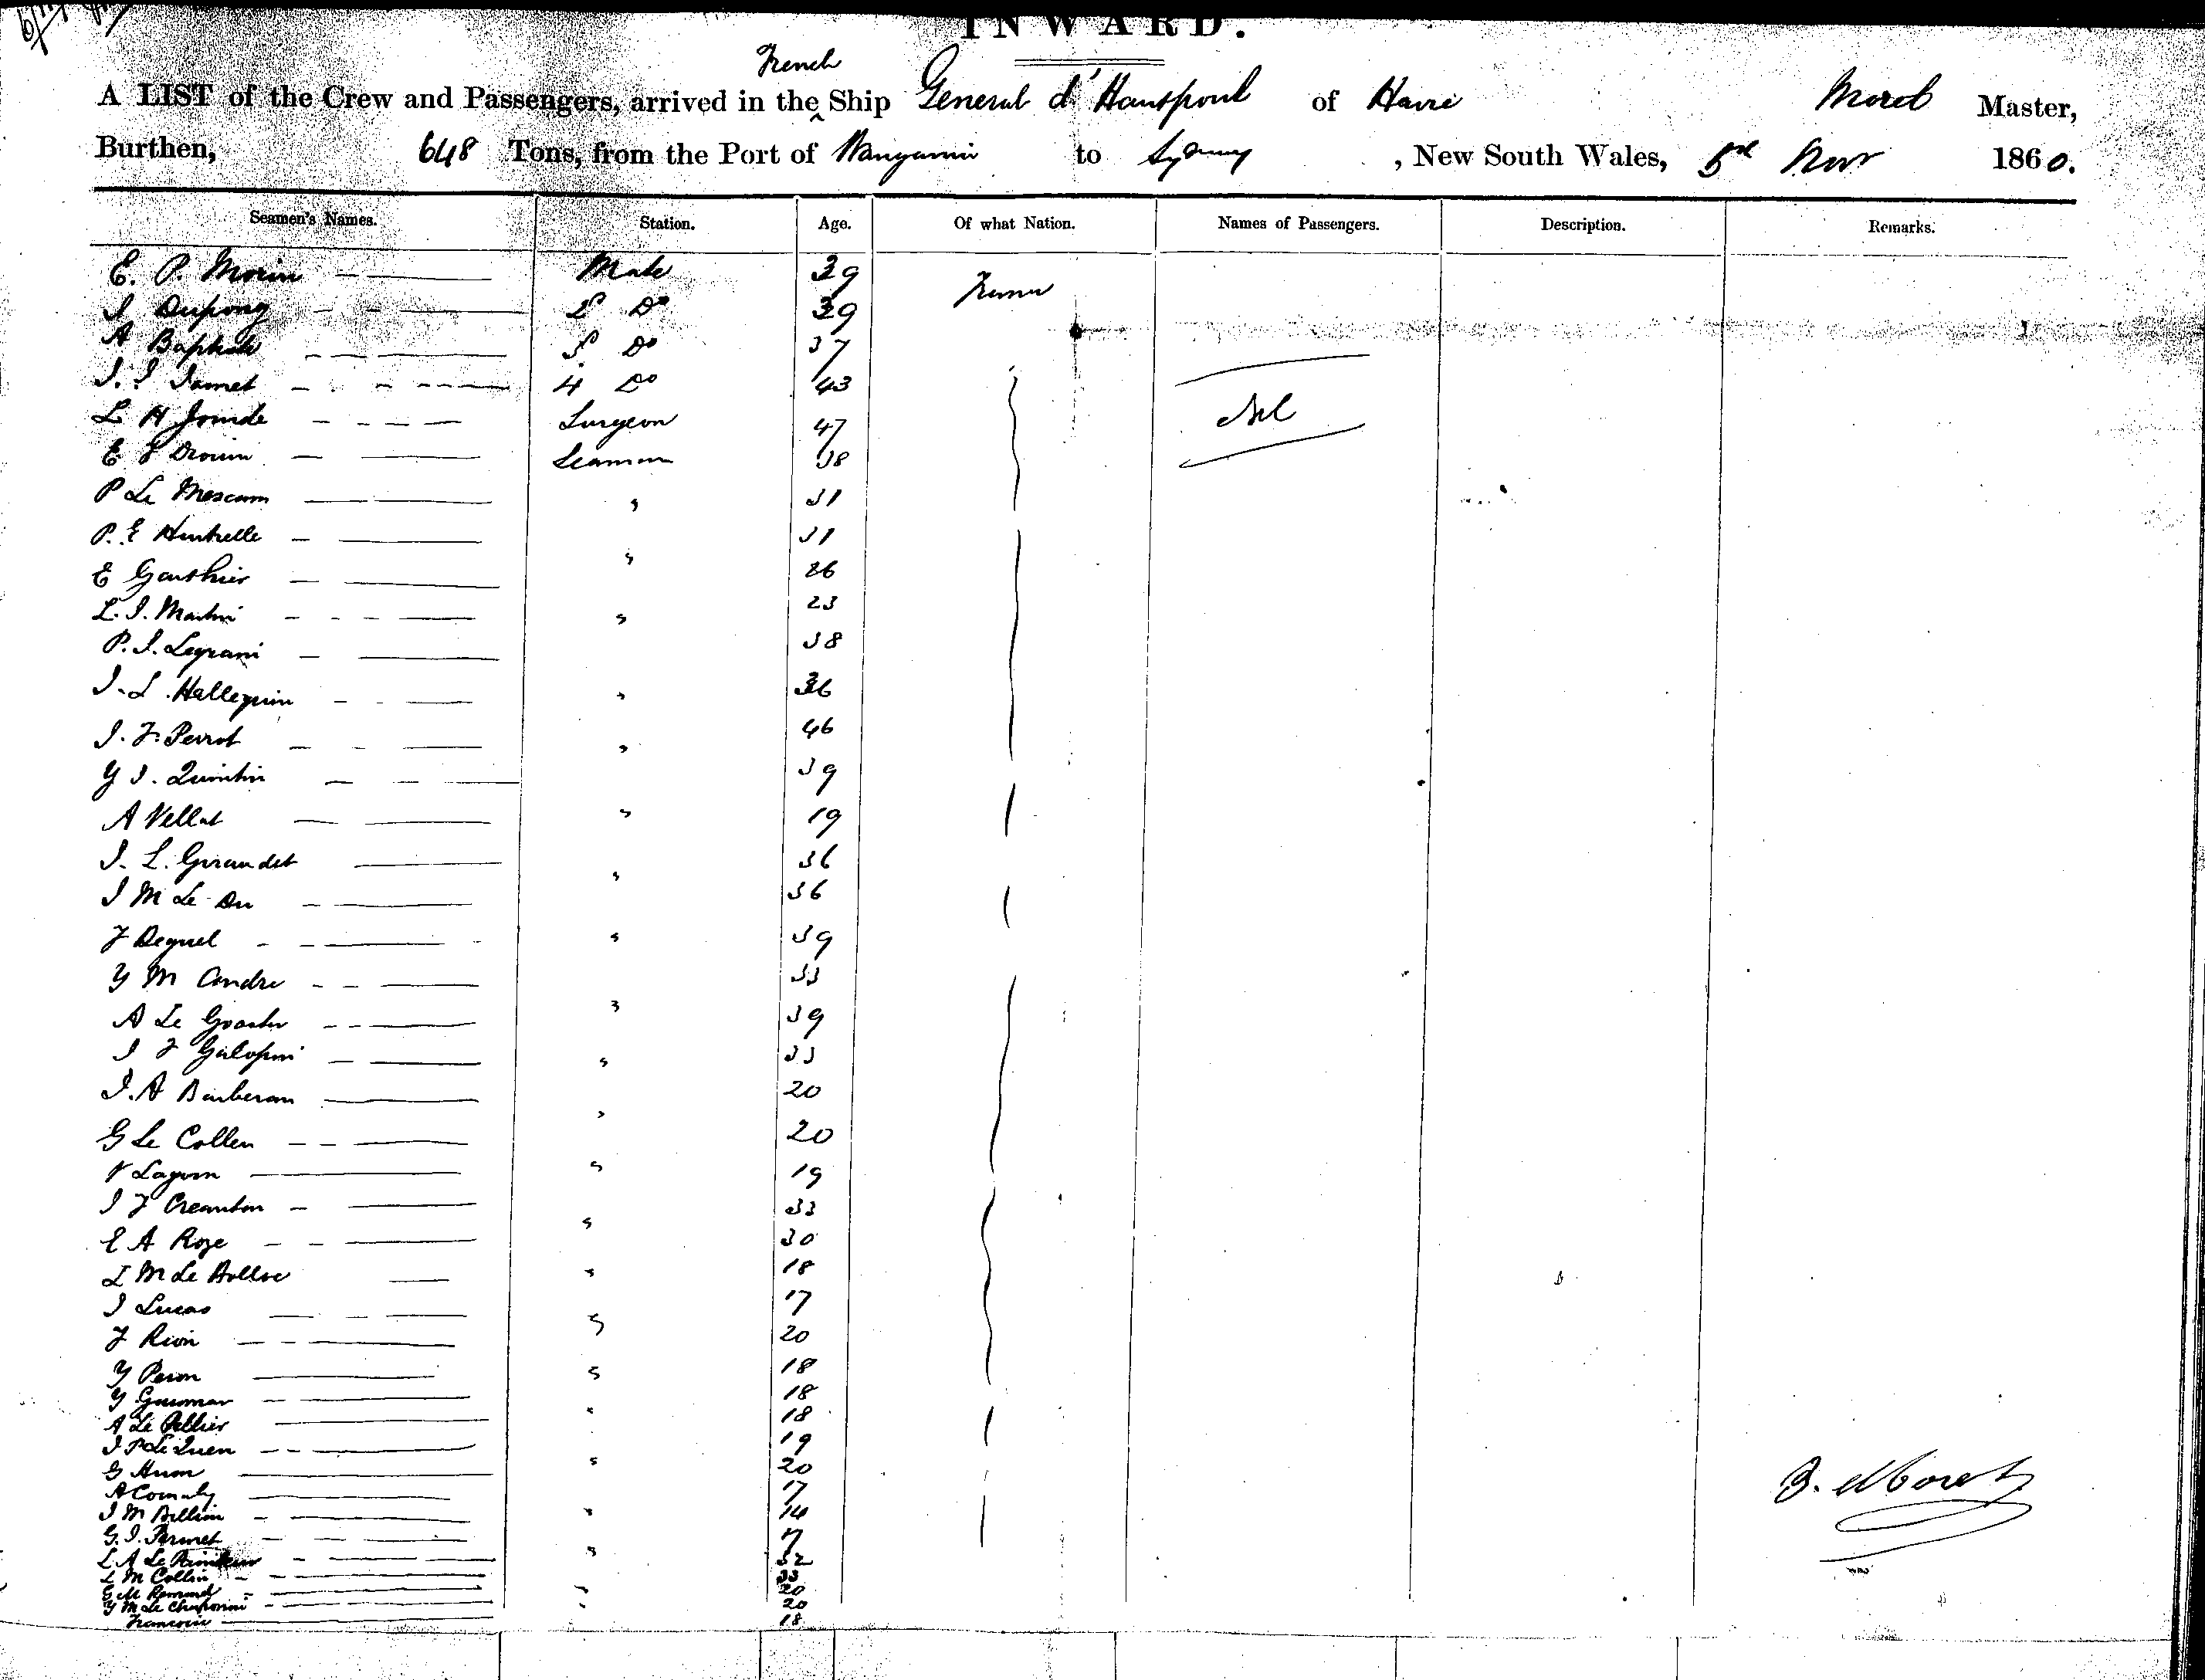 INWARD.
French
A LIST of the Crew and Passengers, arrived in the ^ Ship General d'Hautpoul of Havre Morel Master,
Burthen, 648 Tons, from the Port of to Sydney, New South Wales, 5th Novr 1860.
Seamen's Names. Station. Age. Of what Nation. Names of Passengers. Description. Remarks.
E. P. Morin Mate 39 France
J Dupong 2d Do 39
A Baptiste 3d Do 37
J. J Jamet 4 Do 43
L H Jounde Surgeon 47 Nil
E F Drouin Seaman 38
P Le Mescam " 31
P. E Hentrelle 31
E Gauthier " 26
L. J. Martin " 23
P. J. Legrani 38
J. L. Hallequin " 36
J. F. Perrot " 46
Y J. Quintin 39
A Vellat " 19
J. L. Giraudet 36
J M Le Du " 36
F Deguel " 39
Y M Andre 33
A Le Goaster " 39
J F Galopin " 33
J. A Barberan 20
G Le Collen " 20
V Lagum " 19
J F Creanton 33
E A Roze " 30
L M Le Bolloc " 18
J Lucas 17
F Rion " 20
Y Peron " 18
Y Guiomar 18
A Le Pellier " 18
J P Le Quen 19
G Huon " 20
A Comaly 17
J M Billien " 14
G. J. Perinet 17
L A Le " 32
L M Collin 33
G M Remond " 20
Y M Le 20
Francois 18
J. Morel